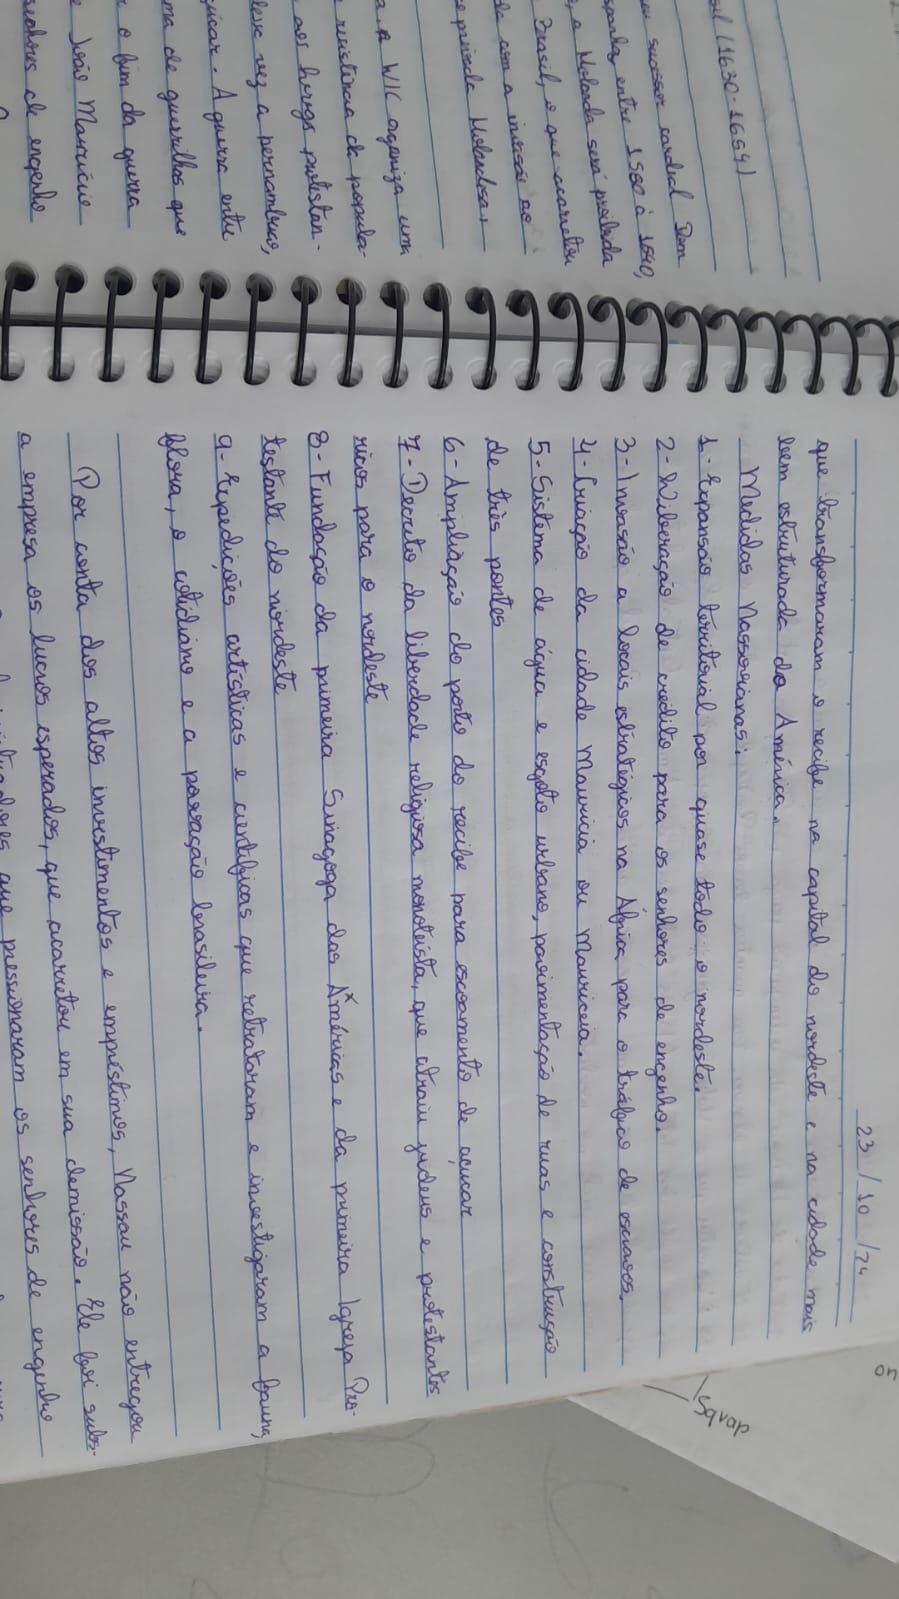 sil (1630-1654)
sucessor cardeal Dom
entre 1580 à 1640,
a Holanda será proibida
Brasil, o que acarretou
com a invasão ao
Holandesa,
a WIC organiza um
resistência de popula-
aos hereges protestan-
vez a pernambuco,
açúcar. A guerra entre
ma de guerrilhas que
r o fim da guerra
e João Maurício
senhores de engenho
23/10/24
que transformaram o recife na capital do nordeste e na cidade mais
bem estruturada da América.
Medidas Nassorianas:
1- Expansão territorial por quase todo o nordeste.
2- Liberação de credito para os senhores de engenho.
3- Invasão a locais estratégicos na África para o tráfico de escravos.
4- Criação da cidade Mauricia ou Mauriceia.
5- Sistema de água e esgoto urbano, pavimentação de ruas e construção
de três pontes
6- Ampliação do porto do recife para escoamento de açucar
7- Decreto da liberdade religiosa monoteísta, que atraiu judeus e protestantes
ricos para o nordeste
8- Fundação da primeira Sinagoga das Américas e da primeira Igreja Pro-
testante do nordeste
9- Expedições artísticas e cientificas que retrataram e investigaram a fauna,
flora, o cotidiano e a população brasileira.
Por conta dos altos investimentos e empréstimos, Nassau não entregou
a empresa os lucros esperados, que acarretou em sua demissão. Ele foi subs-
que pressionaram os senhores de engenho
on
Squap